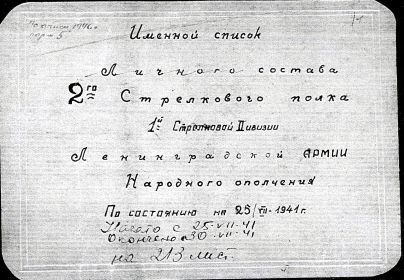 Именной список
Личного состава
2го Стрелкового полка
1й Стрелковой Дивизии
Ленинградской АРМИИ
Народного ополчения
По состоянию на 25/VII-1941г.
Начато с 25-VII-41
Окончено 30-VII-41
на 213 лист